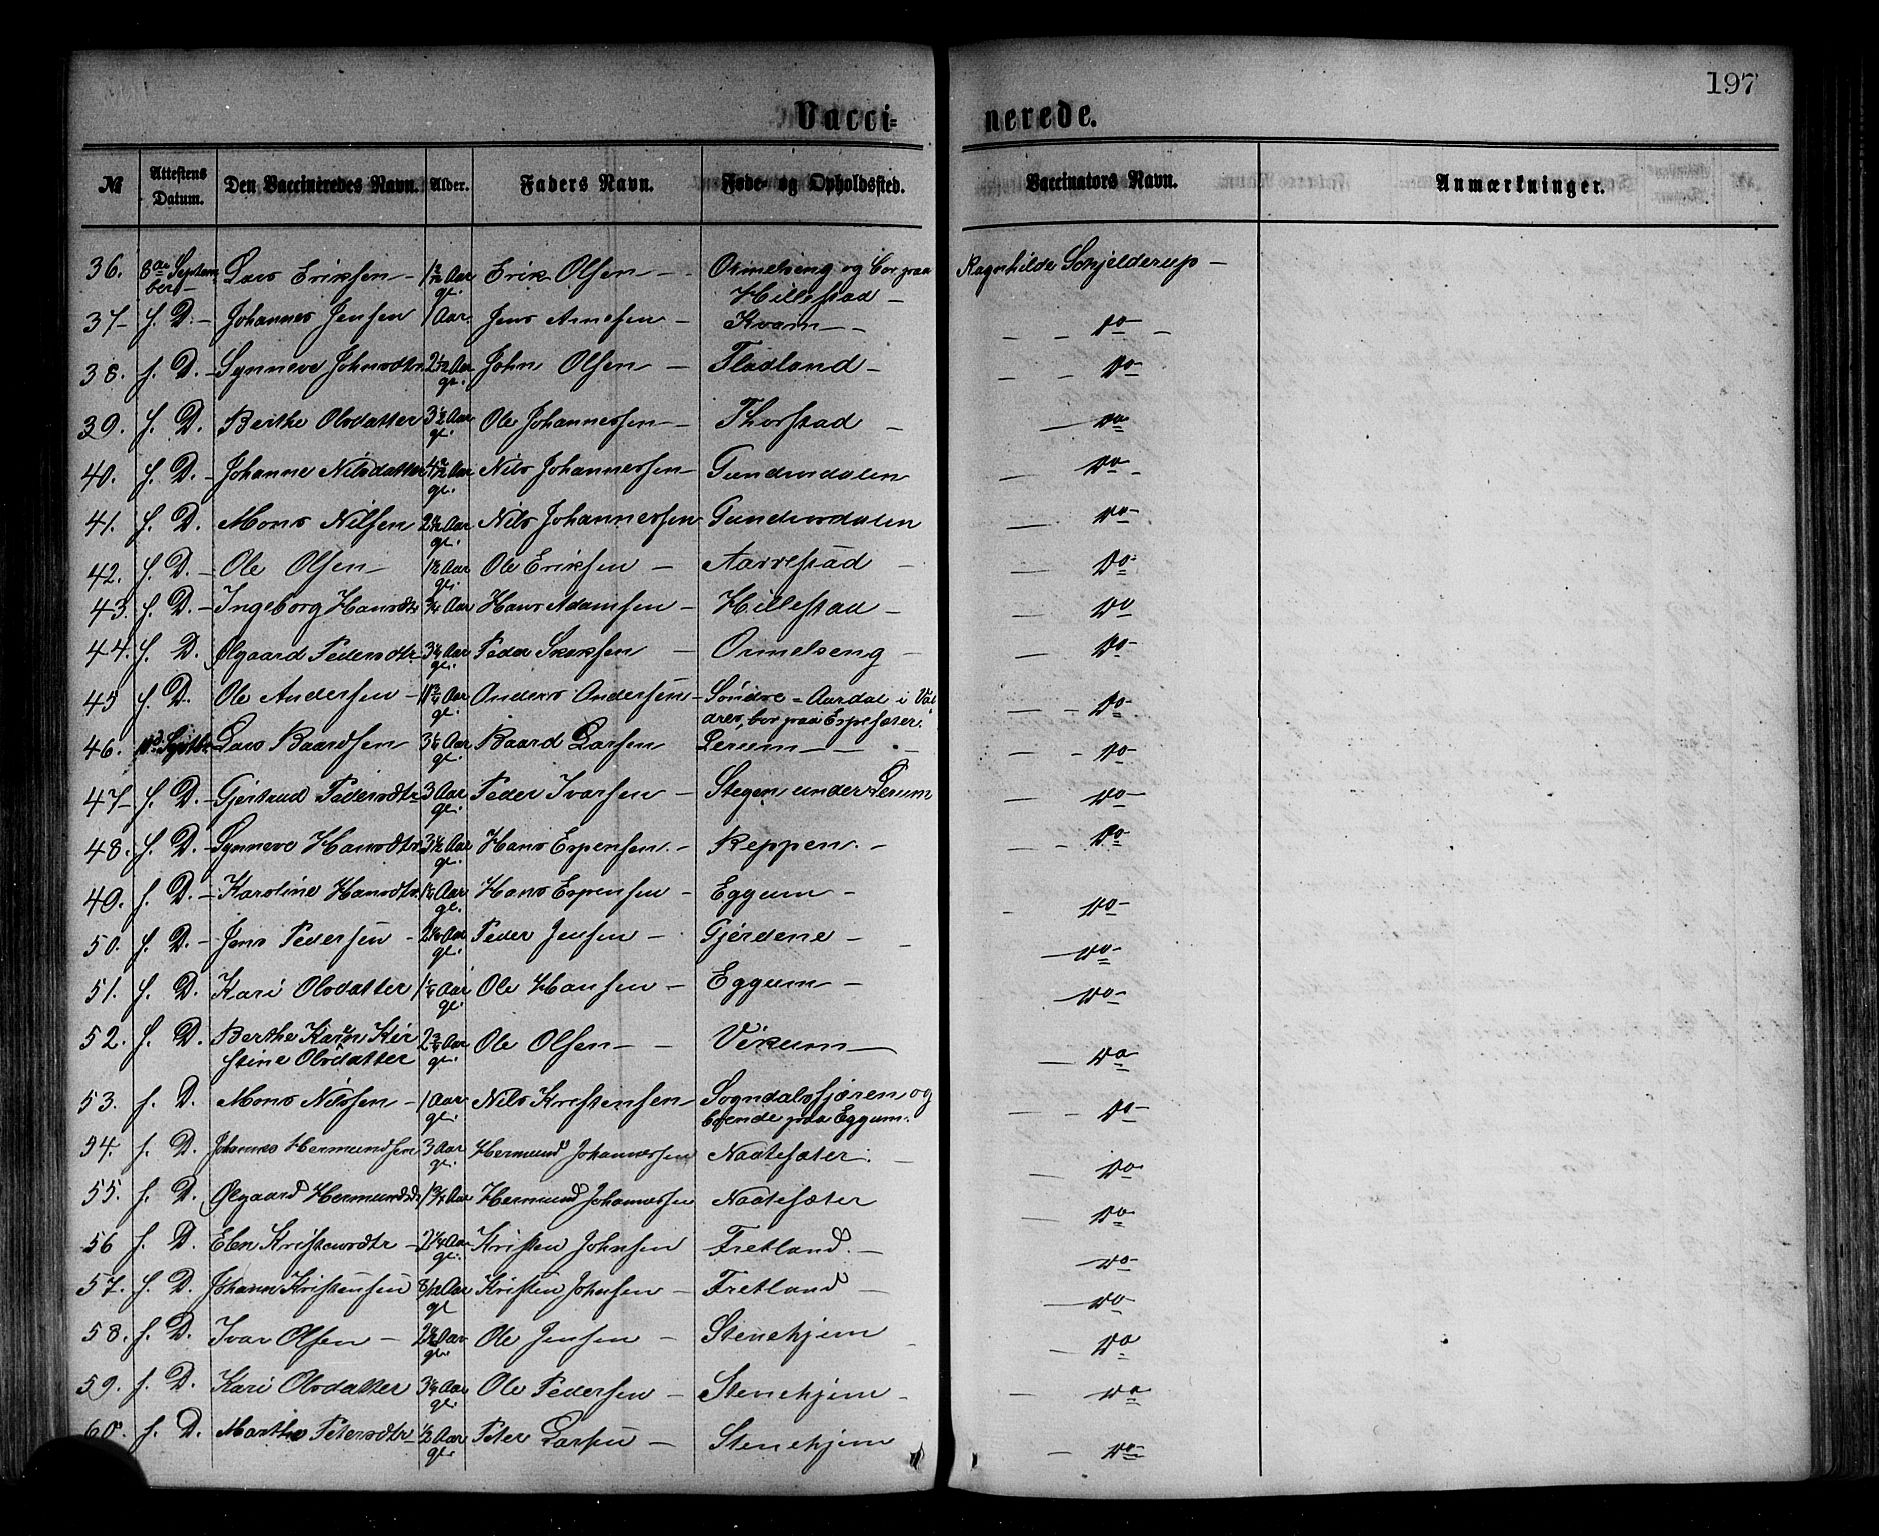 197
Vacci- nerede.
№ Attestens Datum. Den Vaccineredes Navn. Alder. Faders Navn. Føde- og Opholdssted. Vaccinators Navn. Anmærkninger.
36. 8de Septem- Lars Eriksen - Aar Erik Olsen - Ormelseng og bor paa Ragnhilde Schjelderup -
ber - gl. Hillestad -
37 - s. D. - Johannes Jensen 1 Aar Jens Arnesen - Kvam - - - do -
38. s. D. - Synneve Johnsdtr. Aar John Olsen - Fladland - - - do -
gl.
39. s. D. - Berthe Olsdatter 3½ Aar Ole Johannessen - Thorstad - - do
gl.
40. s. D. - Johanne Nilsdatter Aar Nils Johannessen Gundersdalen - do -
gl.
41. s. D. Mons Nilsen Aar Nils Johannessen Gundersdalen - do -
gl.
42. s. D. - Ole Olsen - Aar Ole Eriksen - Aarrestad - - do -
gl.
43. s. D. - Ingeborg Hansdtr Aar Hans Adamsen - Hillestad - - do
44. s. D. Ølgaard Pedersdtr. Aar Peder - Ormelseng - - do -
gl.
45 s. D. Ole Andersen - Aar Anders Andersen - Søndre-Aurdal i Val- - - do -
gl. dres, bor paa Espesæter.
46. Septbr Lars Baardsen Aar Baard Larsen Lerum - - - - do -
gl.
47 - s. D. - Gjertrud Pedersdtr. 3 Aar Peder Ivarsen - Stegen under Lerum - do -
gl.
48. s. D. - Synneve Hansdtr. Aar Hans Espensen. - Reppen. - - - do -
gl.
49. s. D. - Karoline Hansdtr. Aar Hans Espensen - Eggum - - do -
gl.
50. s. D. - Jens Pedersen - Aar Peder Jensen - Gjerdene - - - do -
gl.
51. s. D. Kari Olsdatter Aar Ole Hansen - Eggum - - do -
gl.
52. s. D. Berthe Karen Kir Aar Ole Olsen - - Vikum - - do
stine Olsdatter gl.
53. s. D. Mons Nilssen - 1 Aar Nils Kristensen Sogndalsfjæren og - - do -
gl. boende paa Eggum.
54. s. D. Johannes Hermundsen 3 Aar Hermund Johannessen Naatesæter. - - do
gl.
55. s. D. Ølgaard Hermundsdtr Aar Hermund Johannessen Naatesæter - do
56 s. D. Elen Kristensdtr - 2¼ Aar Kristen Johnsen Fretland. - - do -
gl.
57. s. D. Johann Kristensen Aar Kristen Johnsen - Fretland - - do -
gl
58. s. D. Ivar Olsen - Aar Ole Jensen - Stenehjem - - do
gl.
59. s. D. Kari Olsdatter Aar Ole Pedersen - Stenehjem - - do
gl.
60. s. D. Marthe Petersdtr ½ Aar Peter Larsen - Stenehjem - do
gl.